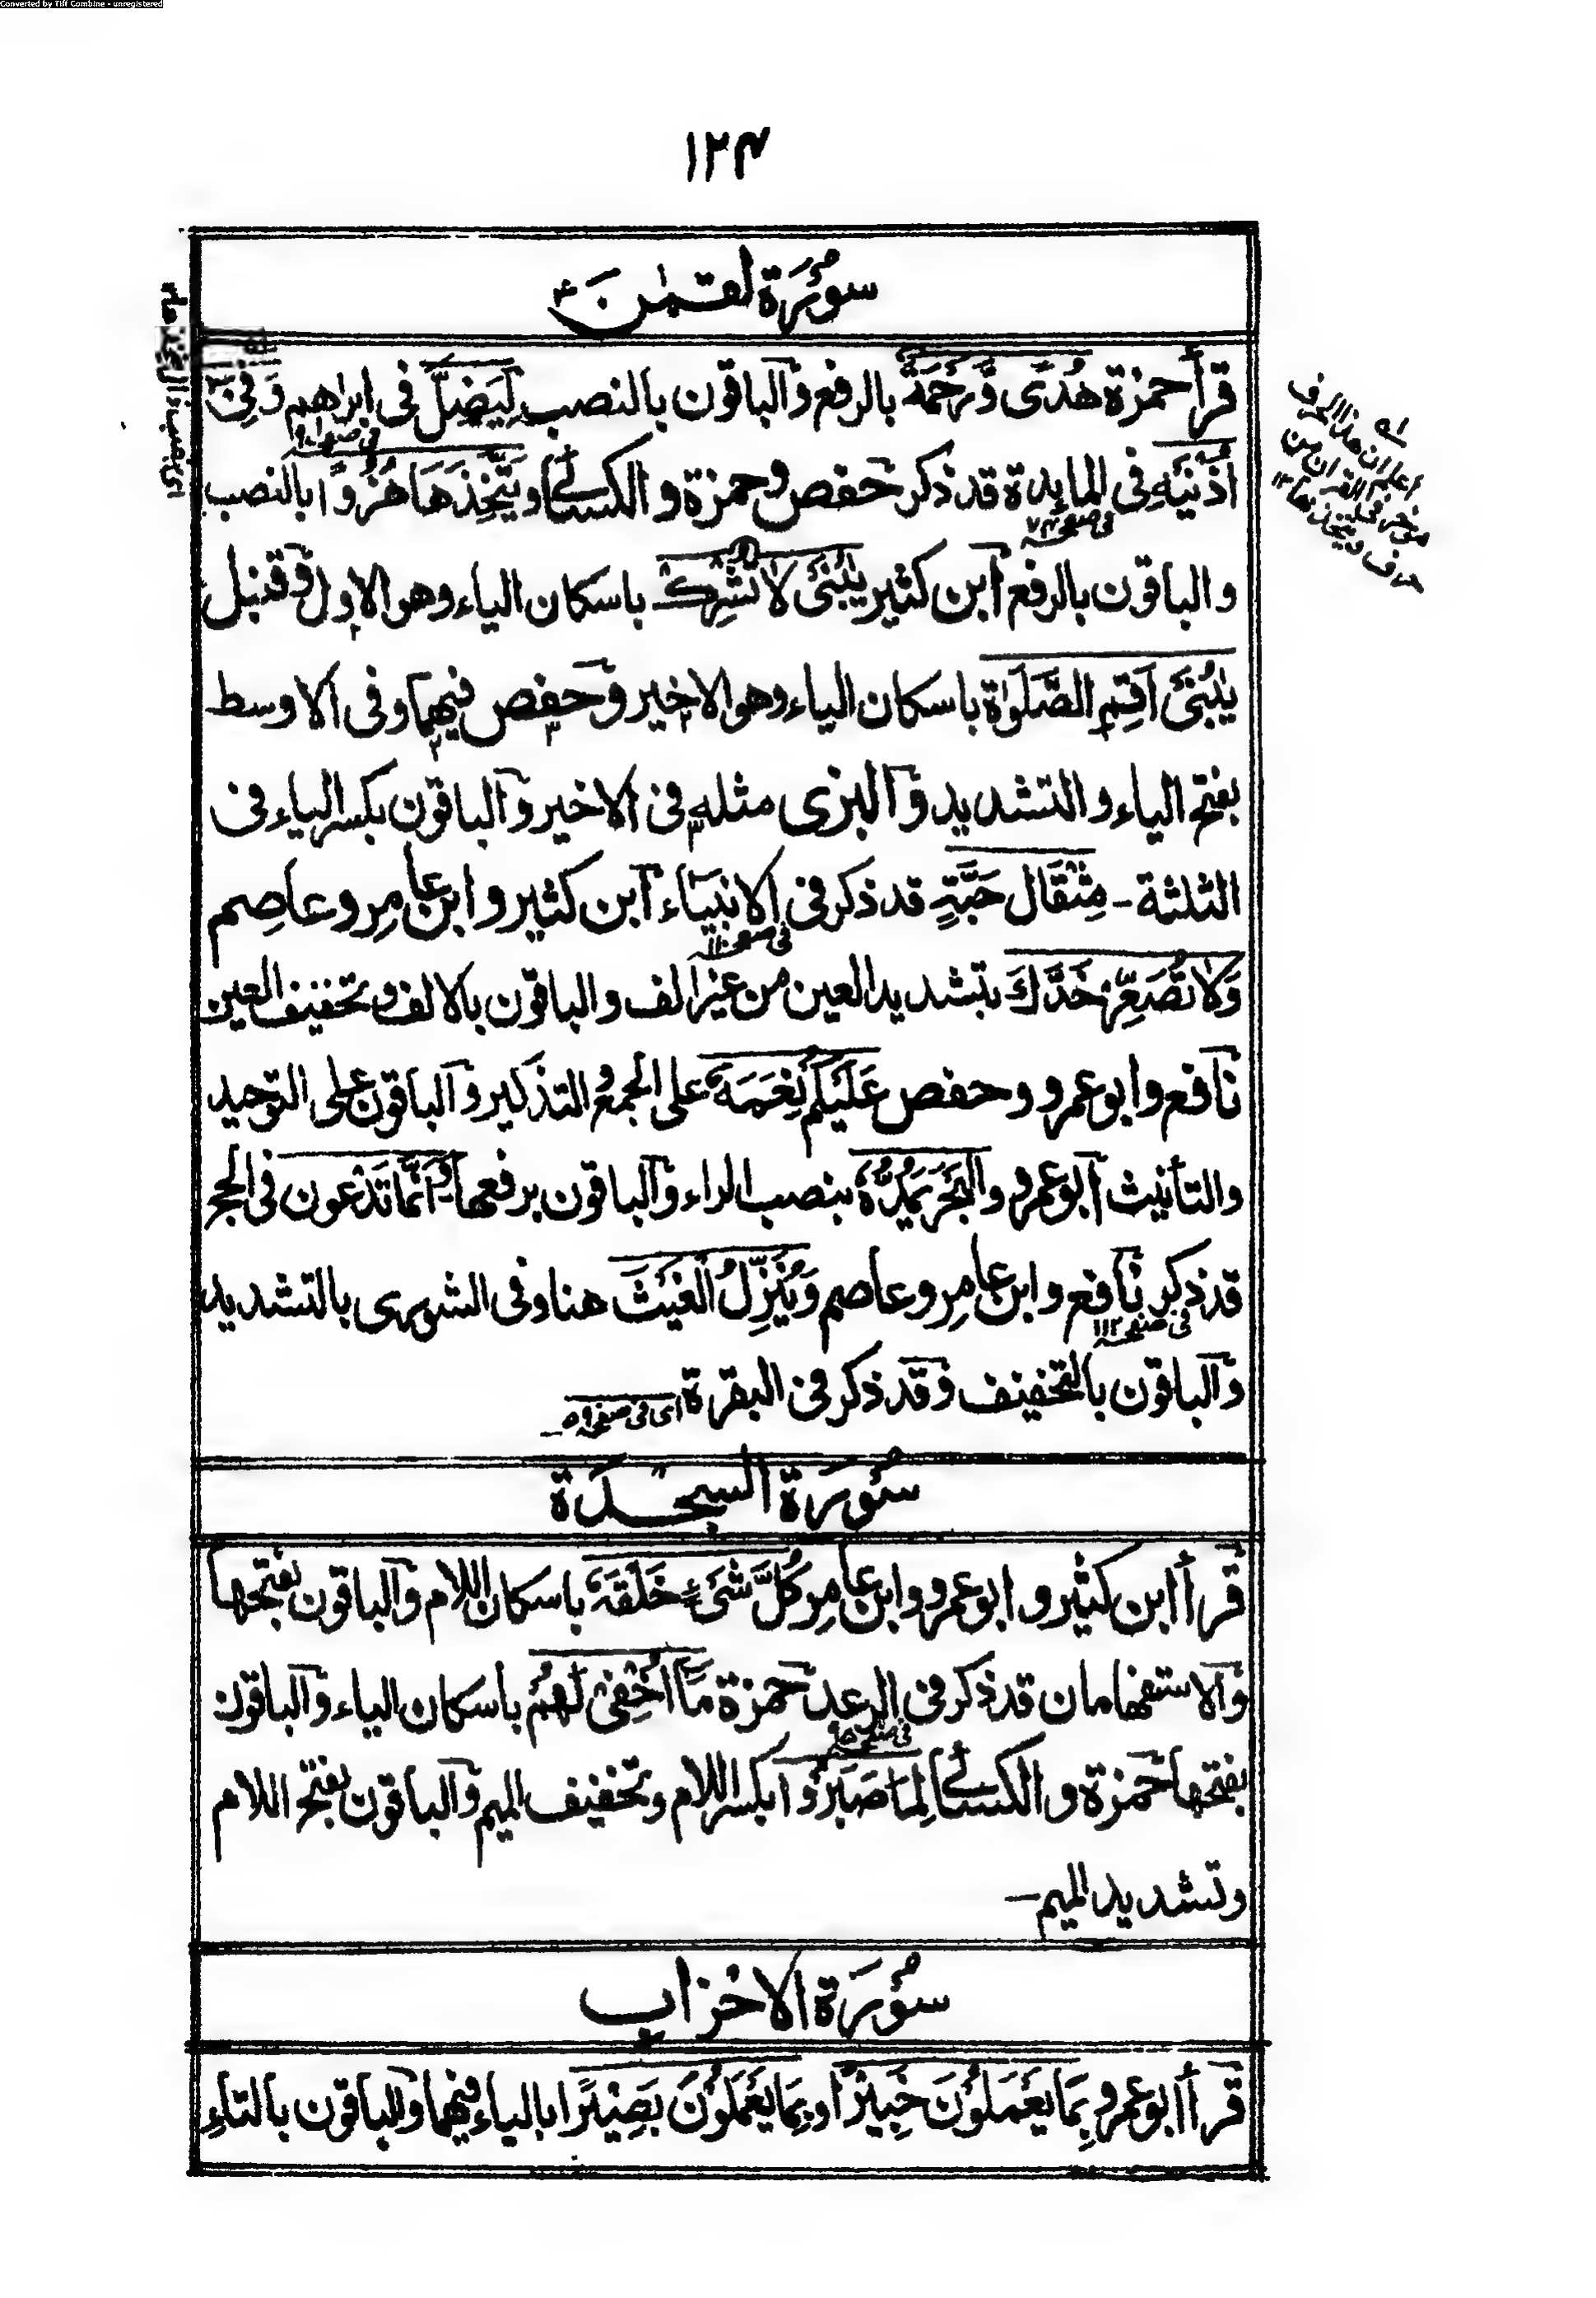 Converted by Tiff Combine - unregistered
١٢٤
سورة لقمٰن
قرأ حمزة هُدًى وَّرَحْمَةٌ بالرفع والباقون بالنصب لِيَضِلَّ فى ابراهيم وَفِىْ
فى صفحه
أُذُنَيْهِ فى المايدة قد ذكر حفص وحمزة والكسائى وَيَتَّخِذَهَا هُزُوًا بالنصب
فى صفحه ٧٤
والباقون بالرفع ابن كثير يٰبُنَىْ لَا تُشْرِكْ باسكان الياء وهو الاول وقنبل
يٰبُنَىْ اَقِمِ الصَّلٰوةَ باسكان الياء وهو الاخير وحفص فيهما وفى الاوسط
بفتح الياء والتشديد والبزى مثله فى الاخير والباقون بكسر الياء فى
الثلثة - مِثْقَالَ حَبَّةٍ قد ذكر فى الانبياء ابن كثير وابن عامر وعاصم
فى صفحه
وَلَا تُصَعِّرْ خَدَّكَ بتشديد العين من غير الف والباقون بالالف وتخفيف العين
نافع وابو عمرو وحفص عَلَيْكُمْ نِعَمَهٗ على الجمع والتذكير والباقون على التوحيد
والتأنيث ابو عمرو وَالْبَحْرَ يَمُدُّهٗ بنصب الراء والباقون برفعها - وَاَنَّمَا تَدْعُون فى الحج
قد ذكر نافع وابن عامر وعاصم وَيُنَزِّلُ الْغَيْثَ هنا وفى الشورى بالتشديد
فى صفحه ١١٢
والباقون بالتخفيف وقد ذكر فى البقرة اى فى صفحه ٥٩
سورة السجدة
قرأ ابن كثير وابو عمرو وابن عامر كُلَّ شَىْءٍ خَلْقَهٗ باسكان اللام والباقون بفتحها
والاستفهامان قد ذكر فى الرعد حمزة مَّآ اُخْفِىْ لَهُمْ باسكان الياء والباقون
فى صفحه
بفتحها حمزة والكسائى لِمَا صَبَرُوْا بكسر اللام وتخفيف الميم والباقون بفتح اللام
وتشديد الميم -
سورة الاحزاب
قرأ ابو عمرو بِمَا يَعْمَلُوْنَ خَبِيْرًا وبِمَا يَعْمَلُوْنَ بَصِيْرًا بالياء فيهما والباقون بالتاء